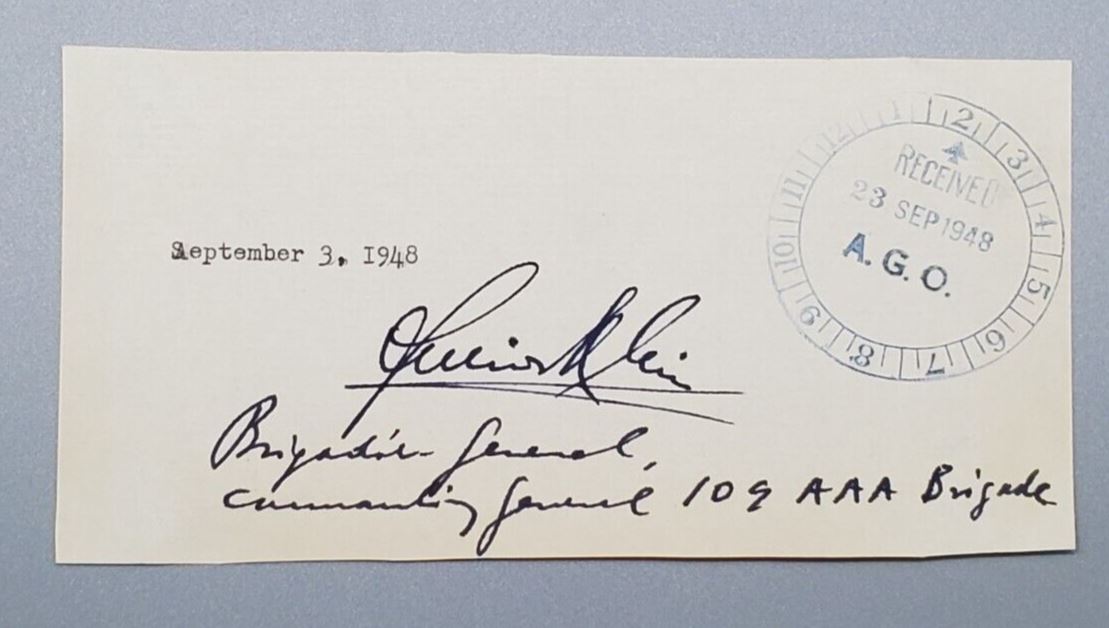 September 3, 1948
Julius Klein
Brigadier General,
Commanding General 109 AAA Brigade
1 2 3 4 5 6 7 8 9 10 11 12
RECEIVED
23 SEP 1948
A. G. O.